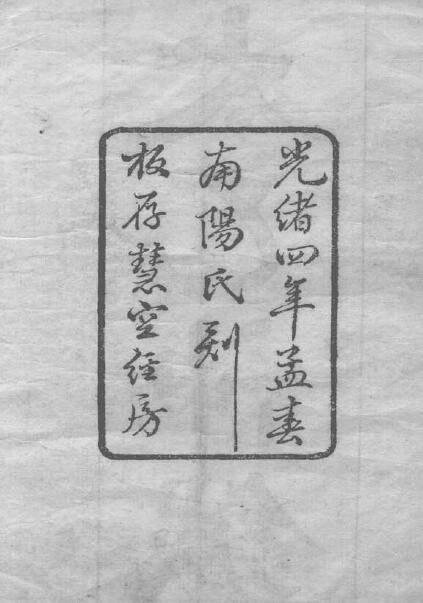 光緒四年孟春
南陽氏刻
板存慧空経房